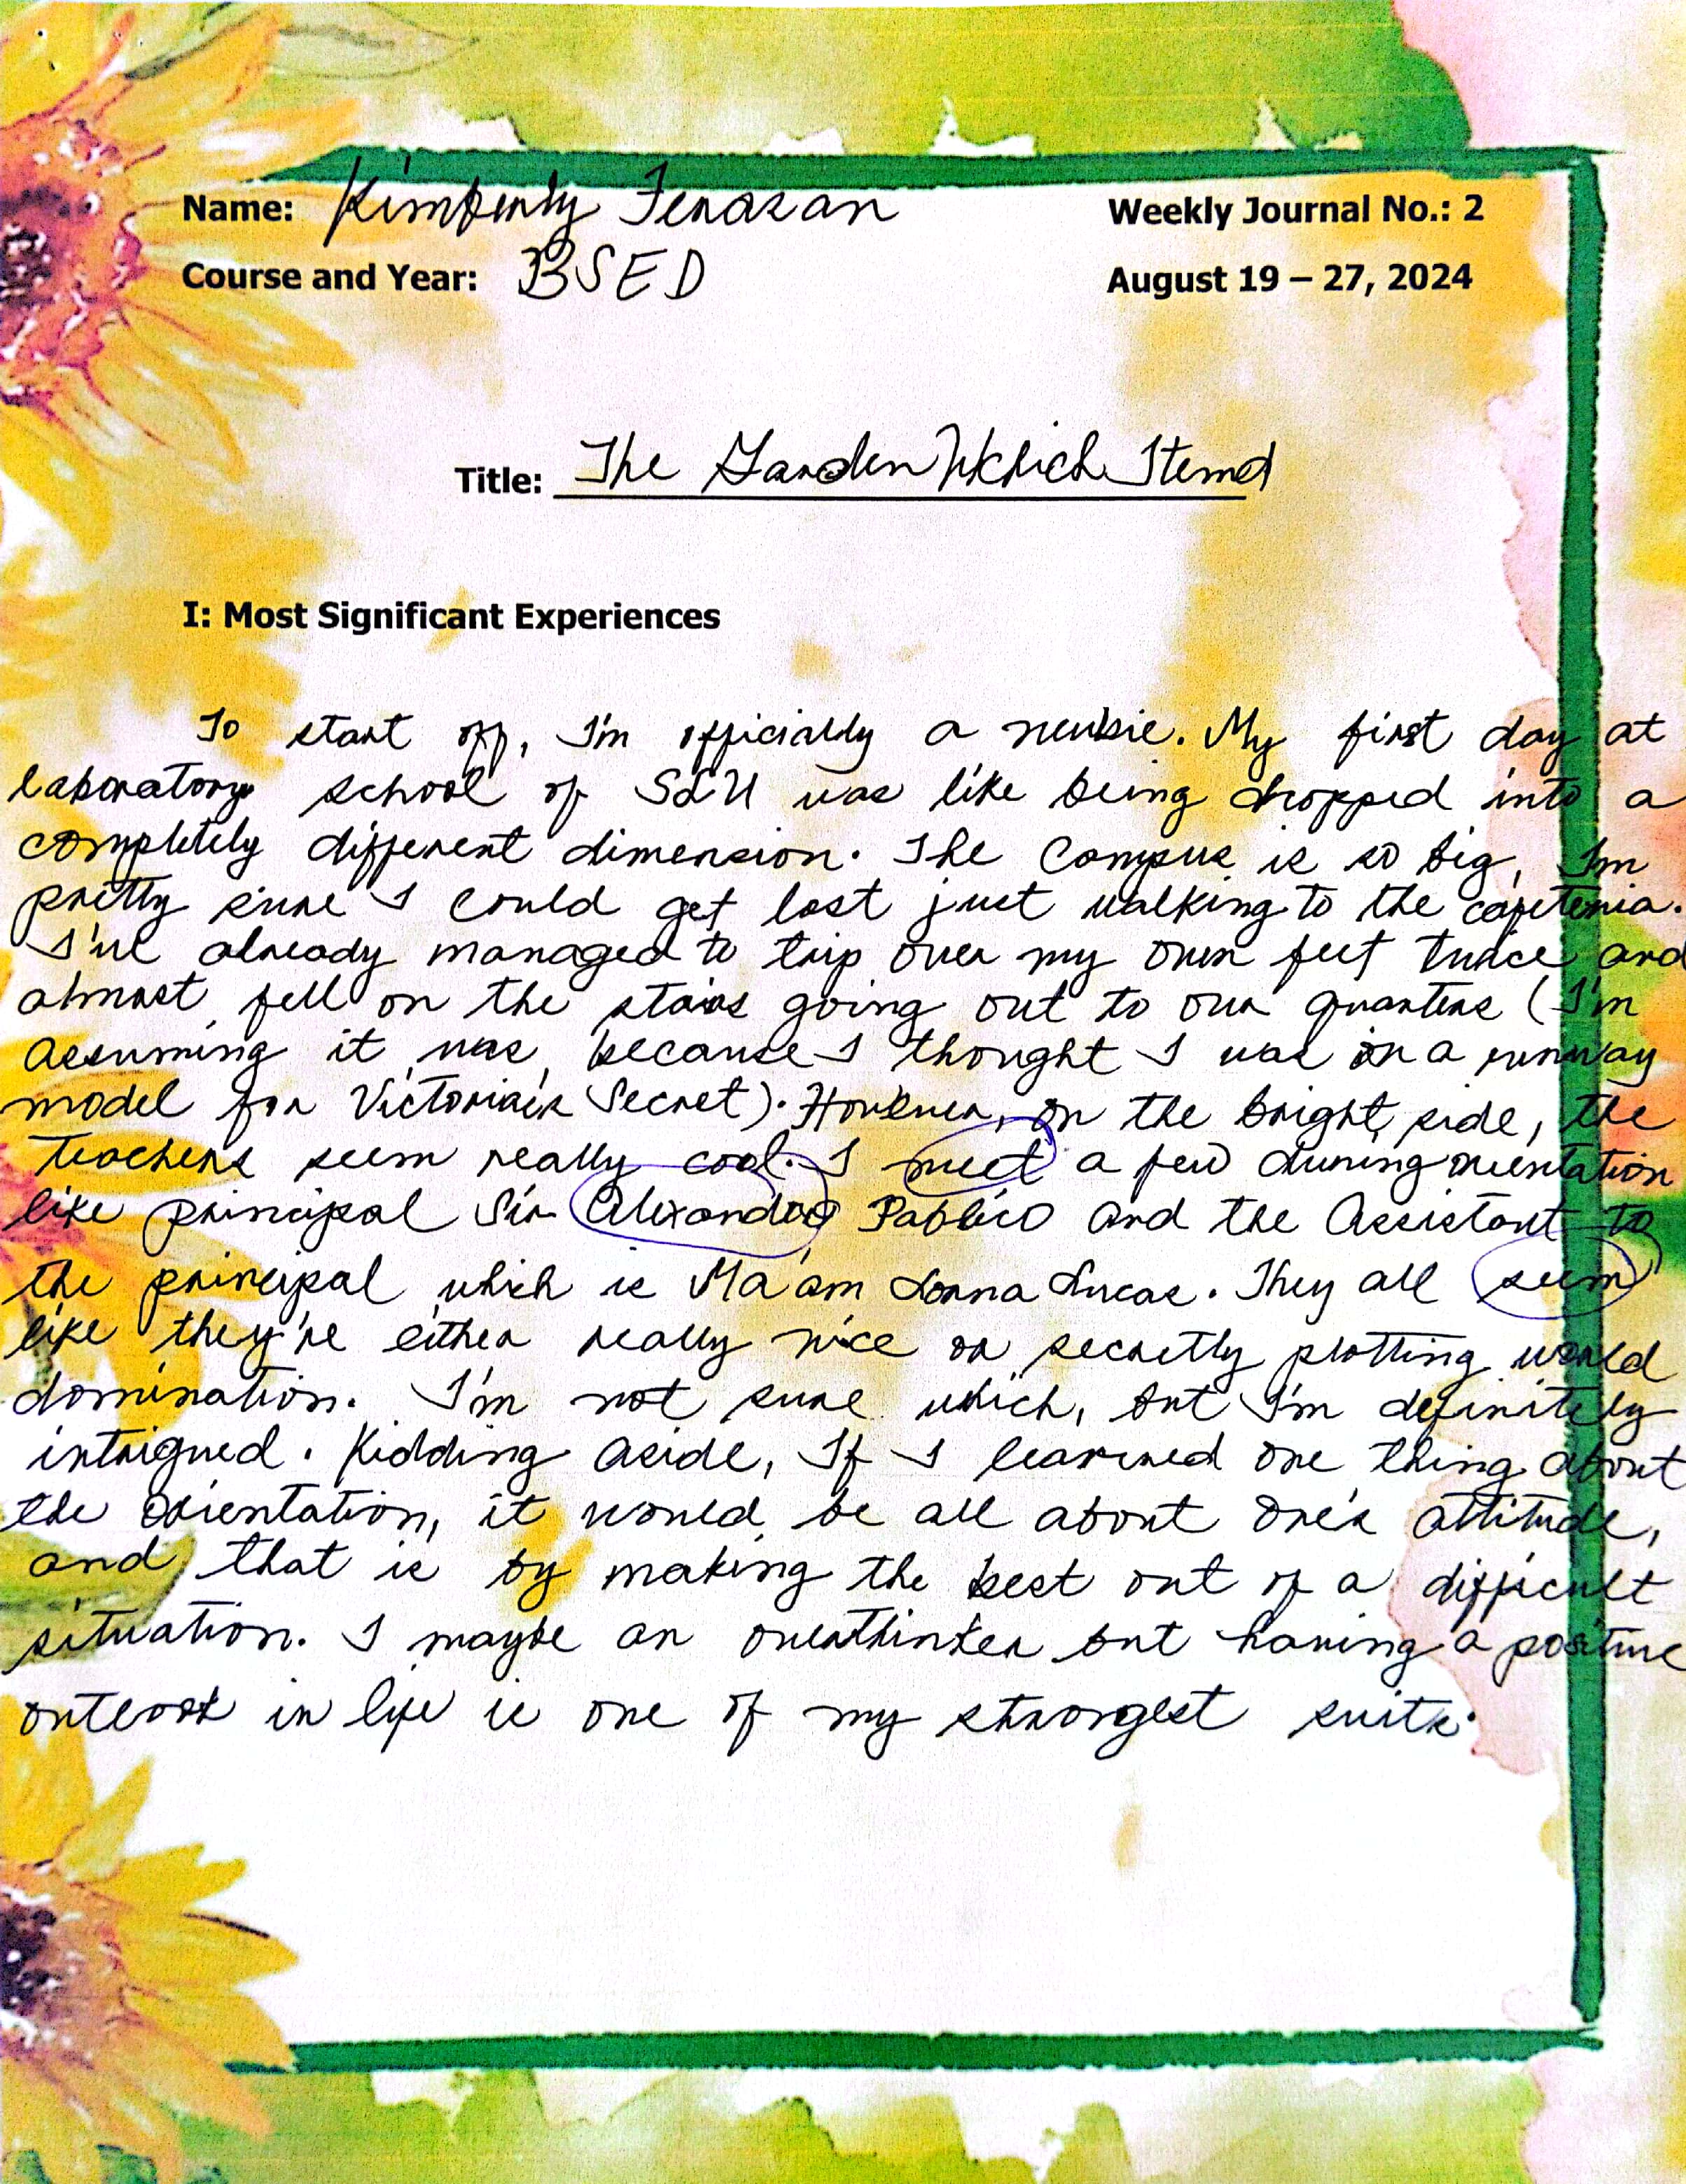 Name: Kimberly Ferasan
Weekly Journal No.: 2
Course and Year: BSED
August 19 – 27, 2024
Title: The Garden Which Stemd
I: Most Significant Experiences
To start off, I'm officially a newbie. My first day at
laboratory school of SLU was like being dropped into a
completely different dimension. The Campus is so big, I'm
pretty sure I could get lost just walking to the cafeteria.
I've already managed to trip over my own feet twice and
almost fell on the stairs going out to our quarters (I'm
assuming it was because I thought I was on a runway
model for Victoria's Secret). However, on the bright side, the
teachers seem really cool. I meet a few during orientation
like principal Sir Pablico and the Assistant to
the principal which is Ma'am Lorna Lucas. They all seem
like they're either really nice or secretly plotting world
domination. I'm not sure which, but I'm definitely
intrigued. Kidding aside, If I learned one thing about
the orientation, it would be all about one's attitude,
and that is by making the best out of a difficult
situation. I maybe an overthinker but having a positive
outlook in life is one of my strongest suits.